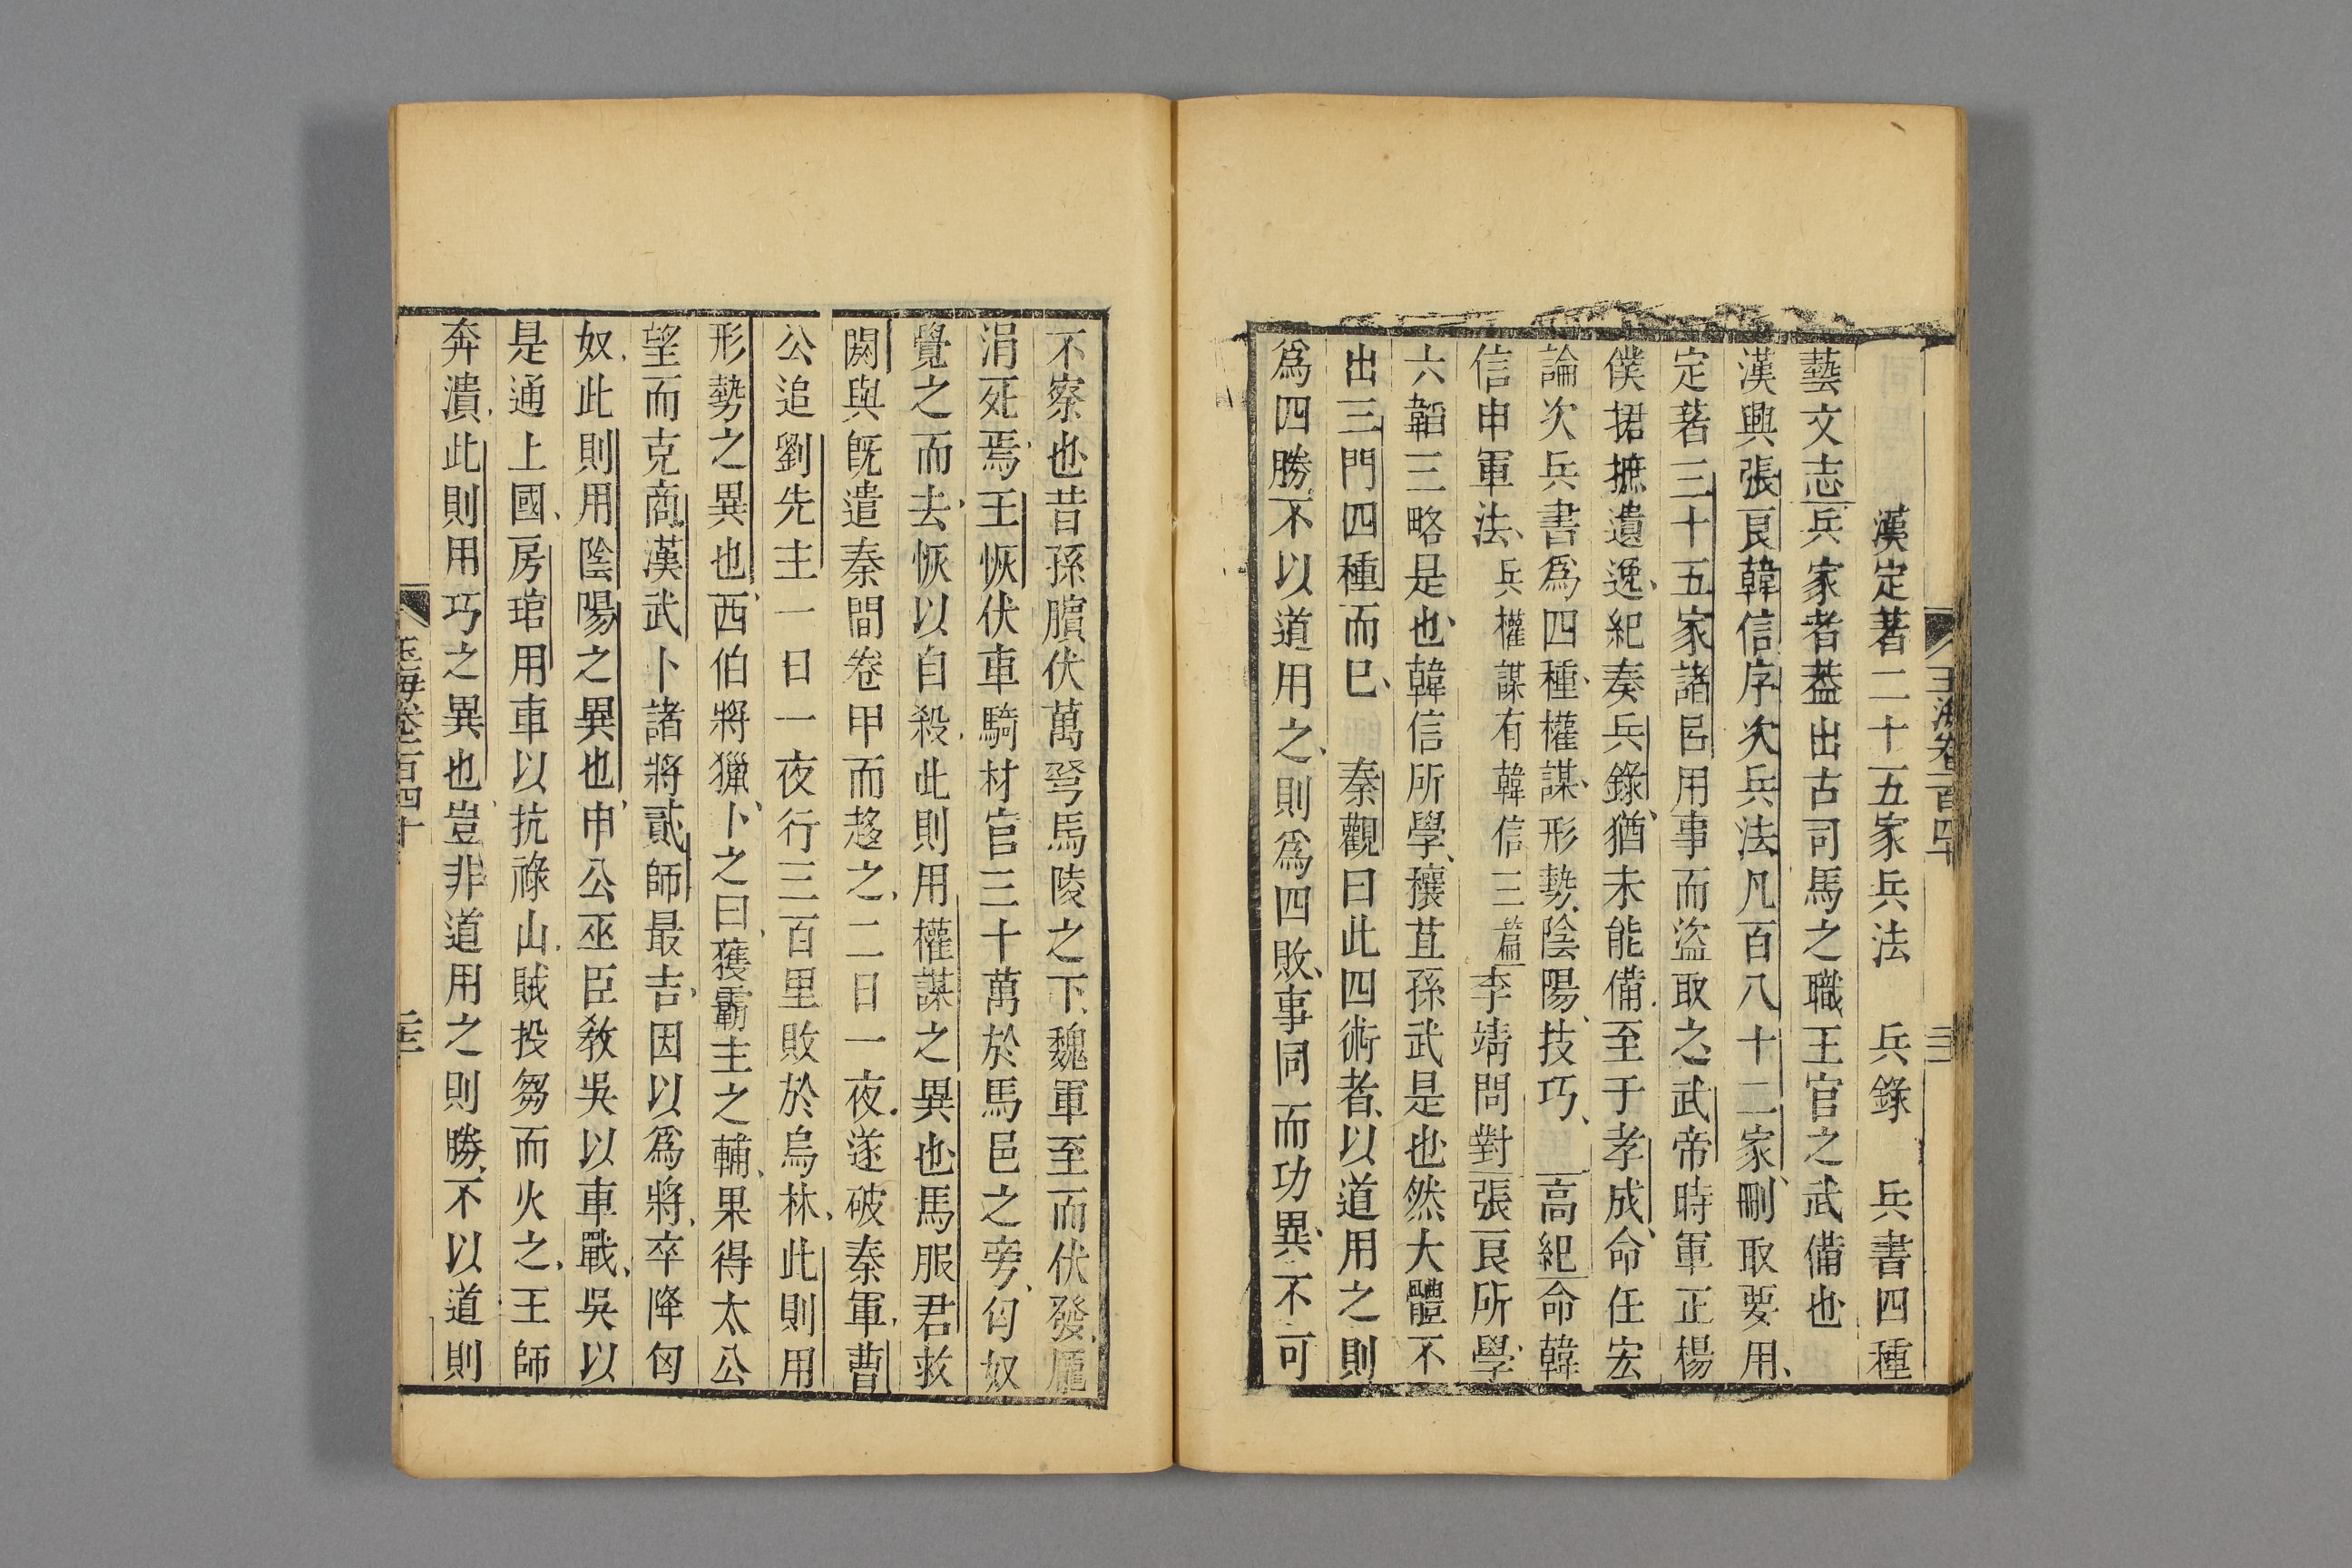 玉海卷一百四十
漢定著二十五家兵法　兵錄　兵書四種
藝文志兵家者葢出古司馬之職王官之武備也
漢興張良韓信序次兵法凡百八十二家刪取要用、
定著三十五家諸呂用事而盜取之武帝時軍正楊
僕捃摭遺逸、紀奏兵錄、猶未能備、至于孝成、命任宏
論次兵書爲四種、權謀、形勢、陰陽、技巧、高紀命韓
信申軍法、兵權謀有韓信三篇李靖問對張良所學、
六韜三略是也、韓信所學、穰苴孫武是也然大體不
出三門四種而已、秦觀曰此四術者、以道用之則
爲四勝、不以道用之、則爲四敗、事同而功異、不可
不察也昔孫臏伏萬弩馬陵之下、魏軍至而伏發、龐
涓死焉、王恢伏車騎材官三十萬於馬邑之旁、匈奴
覺之而去、恢以自殺、此則用權謀之異也馬服君救
閼與既遣秦間卷甲而趍之、二日一夜、遂破秦軍、曹
公追劉先主一日一夜行三百里敗於烏林、此則用
形勢之異也、西伯將獵、卜之曰、獲霸主之輔、果得太公
望而克商、漢武卜諸將貳師最吉、因以爲將、卒降匈
奴、此則用陰陽之異也、申公巫臣敎吳以車戰、吳以
是通上國、房琯用車以抗祿山、賊投芻而火之、王師
奔潰、此則用巧之異也、豈非道用之則勝、不以道則
玉海卷一百四十